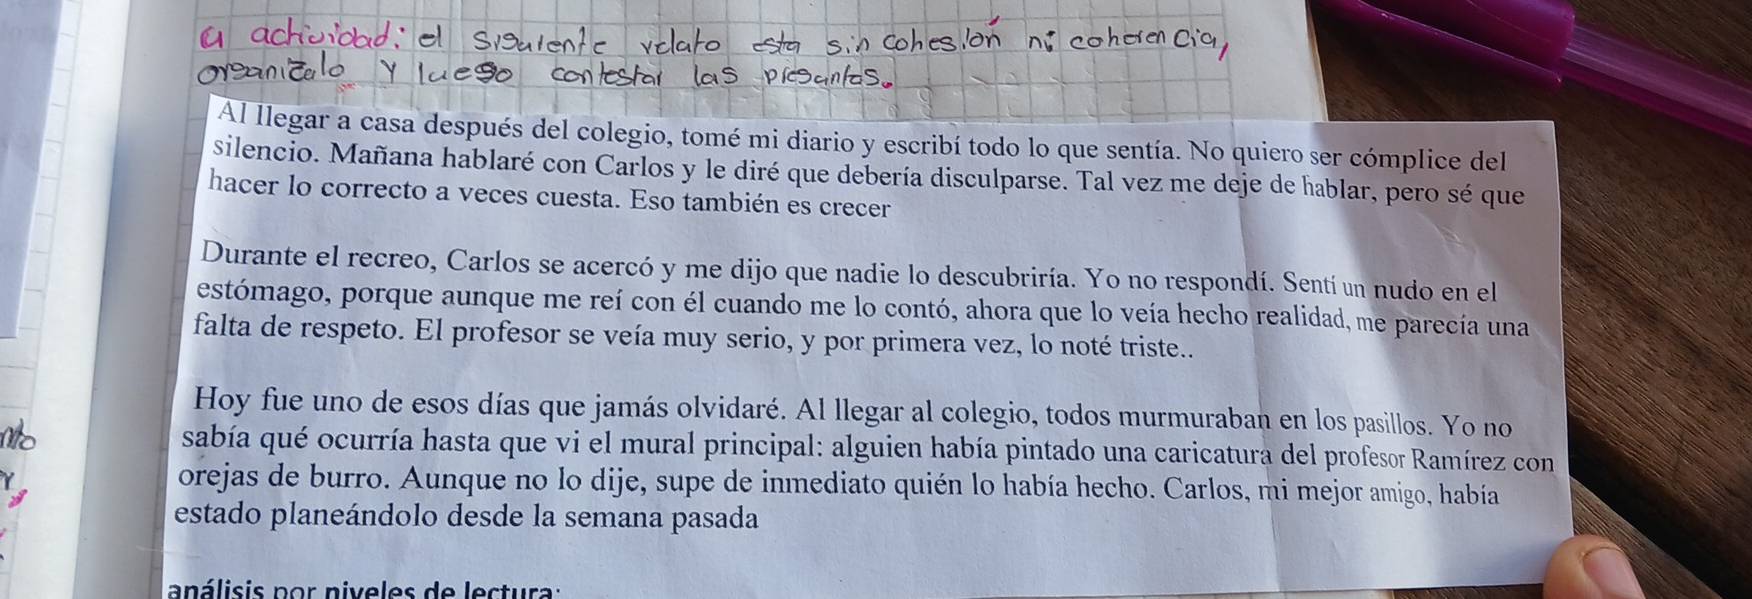 a actividad: el siguiente relato esta sin cohesión ni coherencia,
organizalo y luego contestar las preguntas.
Al llegar a casa después del colegio, tomé mi diario y escribí todo lo que sentía. No quiero ser cómplice del
silencio. Mañana hablaré con Carlos y le diré que debería disculparse. Tal vez me deje de hablar, pero sé que
hacer lo correcto a veces cuesta. Eso también es crecer
Durante el recreo, Carlos se acercó y me dijo que nadie lo descubriría. Yo no respondí. Sentí un nudo en el
estómago, porque aunque me reí con él cuando me lo contó, ahora que lo veía hecho realidad, me parecía una
falta de respeto. El profesor se veía muy serio, y por primera vez, lo noté triste..
Hoy fue uno de esos días que jamás olvidaré. Al llegar al colegio, todos murmuraban en los pasillos. Yo no
sabía qué ocurría hasta que vi el mural principal: alguien había pintado una caricatura del profesor Ramírez con
orejas de burro. Aunque no lo dije, supe de inmediato quién lo había hecho. Carlos, mi mejor amigo, había
estado planeándolo desde la semana pasada
análisis por niveles de lectura: